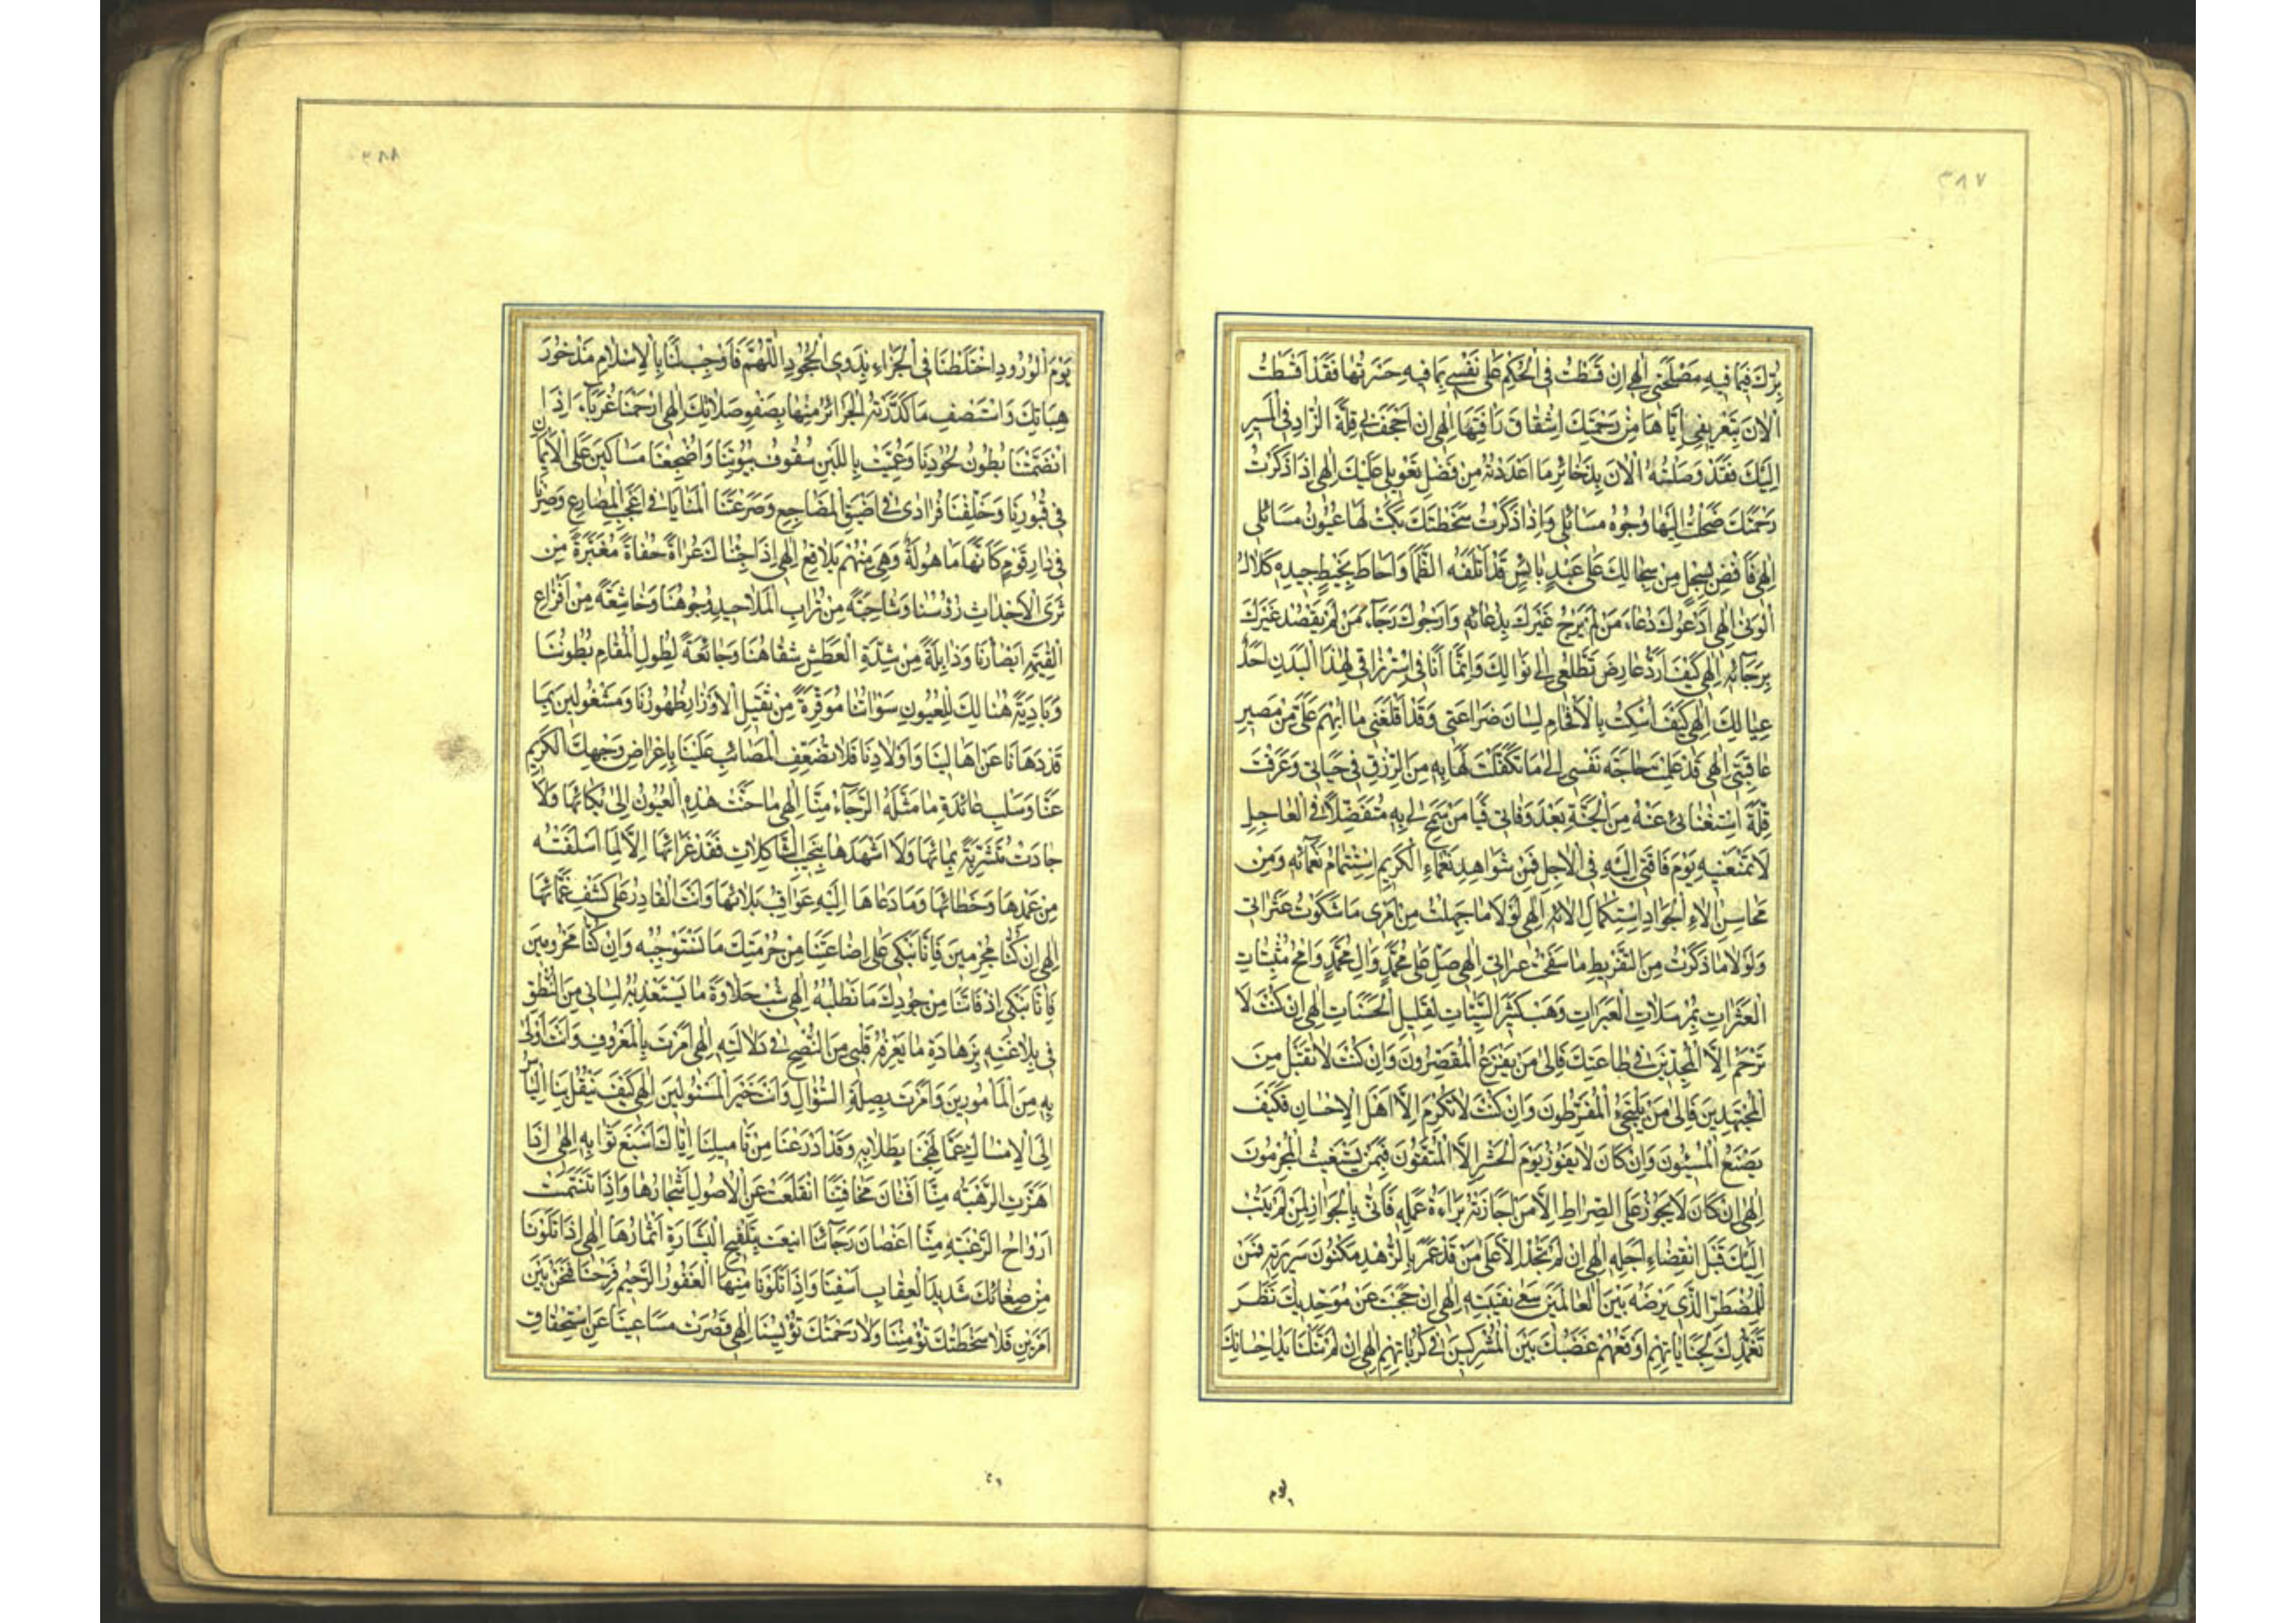 ٣٨٧
بِرّك فيما فيه مصلحتي الهي ان قسطت في الحكم على نفسي بما فيه حسرتها فقد اقسطت
الان بتعريفي اياها من رحمتك اشفاق رافتها الهي ان اجحف بي قلة الزاد في المسير
اليك فقد وصلته الان بذخائر ما اعددته من فضل تعويلي عليك الهي اذا ذكرت
رحمتك ضحكت اليها وجوه مسائلي واذا ذكرت سخطتك بكت لها عيون مسائلي
الهي فافض بسجل من سجالك على عبد بائس قد اتلفه الظما واحاط بخيط جيده كلال
الونى الهي ادعوك دعاء من لم يرج غيرك بدعائه وارجوك رجاء من لم يقصد غيرك
برجائه الهي كيف ارد عارض تطلعي الى نوالك وانما انا في استرزاقي لهذا البدن احد
عيالك الهي كيف اسكت بالافحام لسان ضراعتي وقد اقلقني ما ابهم علي من مصير
عاقبتي الهي قد علمت حاجة نفسي الى ما تكفلت لها به من الرزق في حياتي وعرفت
قلة استغنائي عنه من الجنة بعد وفاتي فيا من سمح لي به متفضلا في العاجل
لا تمنعنيه يوم فاقتي اليه في الاجل فمن شواهد نعماء الكريم استتمام نعمائه ومن
محاسن الاء الجواد استكمال الائه الهي لولا ما جهلت من امري ما شكوت عثراتي
ولولا ما ذكرت من التفريط ما سفحت عبراتي الهي صل على محمد وال محمد وامح مثبتات
العثرات بمرسلات العبرات وهب كثير السيئات لقليل الحسنات الهي ان كنت لا
ترحم الا المجدين في طاعتك فالى من يفزع المقصرون وان كنت لا تقبل من
المجتهدين فالى من يلتجئ المفرطون وان كنت لا تكرم الا اهل الاحسان فكيف
يصنع المسيئون وان كان لا يفوز يوم الحشر الا المتقون فبمن يستغيث المجرمون
الهي ان كان لا يجوز على الصراط الا من اجازته براءة عمله فانى بالجواز لمن لم يتب
اليك قبل انقضاء اجله الهي ان لم تجد الا على من قد عمر بالزهد مكنون سريرته فمن
للمضطر الذي يرضه بين العالمين سعي نقيبته الهي ان حجبت عن موحديك نظر
تغمدك لجناياتهم اوقعهم غضبك بين المشركين في كرباتهم الهي ان لم تنلنا يد احسانك
يوم
٣٨٨
يوم الورود اختلطنا في الجزاء بذوي الجحود اللهم فاوجب لنا بالاسلام مذخور
هباتك واستصف ما كدرته الجرائر منها بصفو صلاتك الهي ارحمنا غرباء اذا
انضمتنا بطون لحودنا وغميت باللبن سقوف بيوتنا واضجعنا مساكين على الايمان
في قبورنا وخلفنا فرادى في اضيق المضاجع وصرعتنا المنايا في اعجب المصارع وصرنا
في دار قوم كانها ماهولة وهي منهم بلاقع الهي اذا جئناك عراة حفاة مغبرة من
ثرى الاجداث رؤسنا وشاحبة من تراب الملاحيد وجوهنا وخاشعة من افزاع
القيمة ابصارنا وذابلة من شدة العطش شفاهنا وجائعة لطول المقام بطوننا
وبادية هنالك للعيون سواتنا موقرة من ثقيل الاوزار ظهورنا ومشغولين بما
قد دهانا عن اهالينا واولادنا فلا تضعف المصائب علينا باعراض وجهك الكريم
عنا وسلب عائدة ما مثله الرجاء منا الهي ما حنت هذه العيون الى بكائها ولا
جادت متشربة بمائها ولا اشهدها بنحيب الثاكلات فقد عزائها الا لما اسلفته
من عمدها وخطائها وما دعاها اليه عواقب بلائها وانت القادر على كشف غمائها
الهي ان كنا مجرمين فانا نبكي على اضاعتنا من حرمتك ما نستوجبه وان كنا محرومين
فانا نبكي اذ فاتنا من جودك ما نطلبه الهي شب حلاوة ما يستعذبه لساني من النطق
في بلاغته بزهادة ما يعرفه قلبي من النصح في دلالته الهي امرت بالمعروف وانت اولى
به من المامورين وامرت بصلة السؤال وانت خير المسئولين الهي كيف ينقل بنا الياس
الى الامساك عما لهجنا بطلابه وقد ادرعنا من تاميلنا اياك اسبغ ثوابه الهي اذا
هزت الرهبة منا افنان مخافتنا انقلعت عن الاصول اشجارها واذا تنسمت
ارواح الرغبة منا اغصان رجائنا اينعت بتلقيح البشارة اثمارها الهي اذا تلونا
من صفاتك شديد العقاب اسفنا واذا تلونا منها الغفور الرحيم فرحنا فنحن بين
امرين فلا سخطتك تؤمننا ولا رحمتك تؤيسنا الهي قصرت مساعينا عن استحقاق